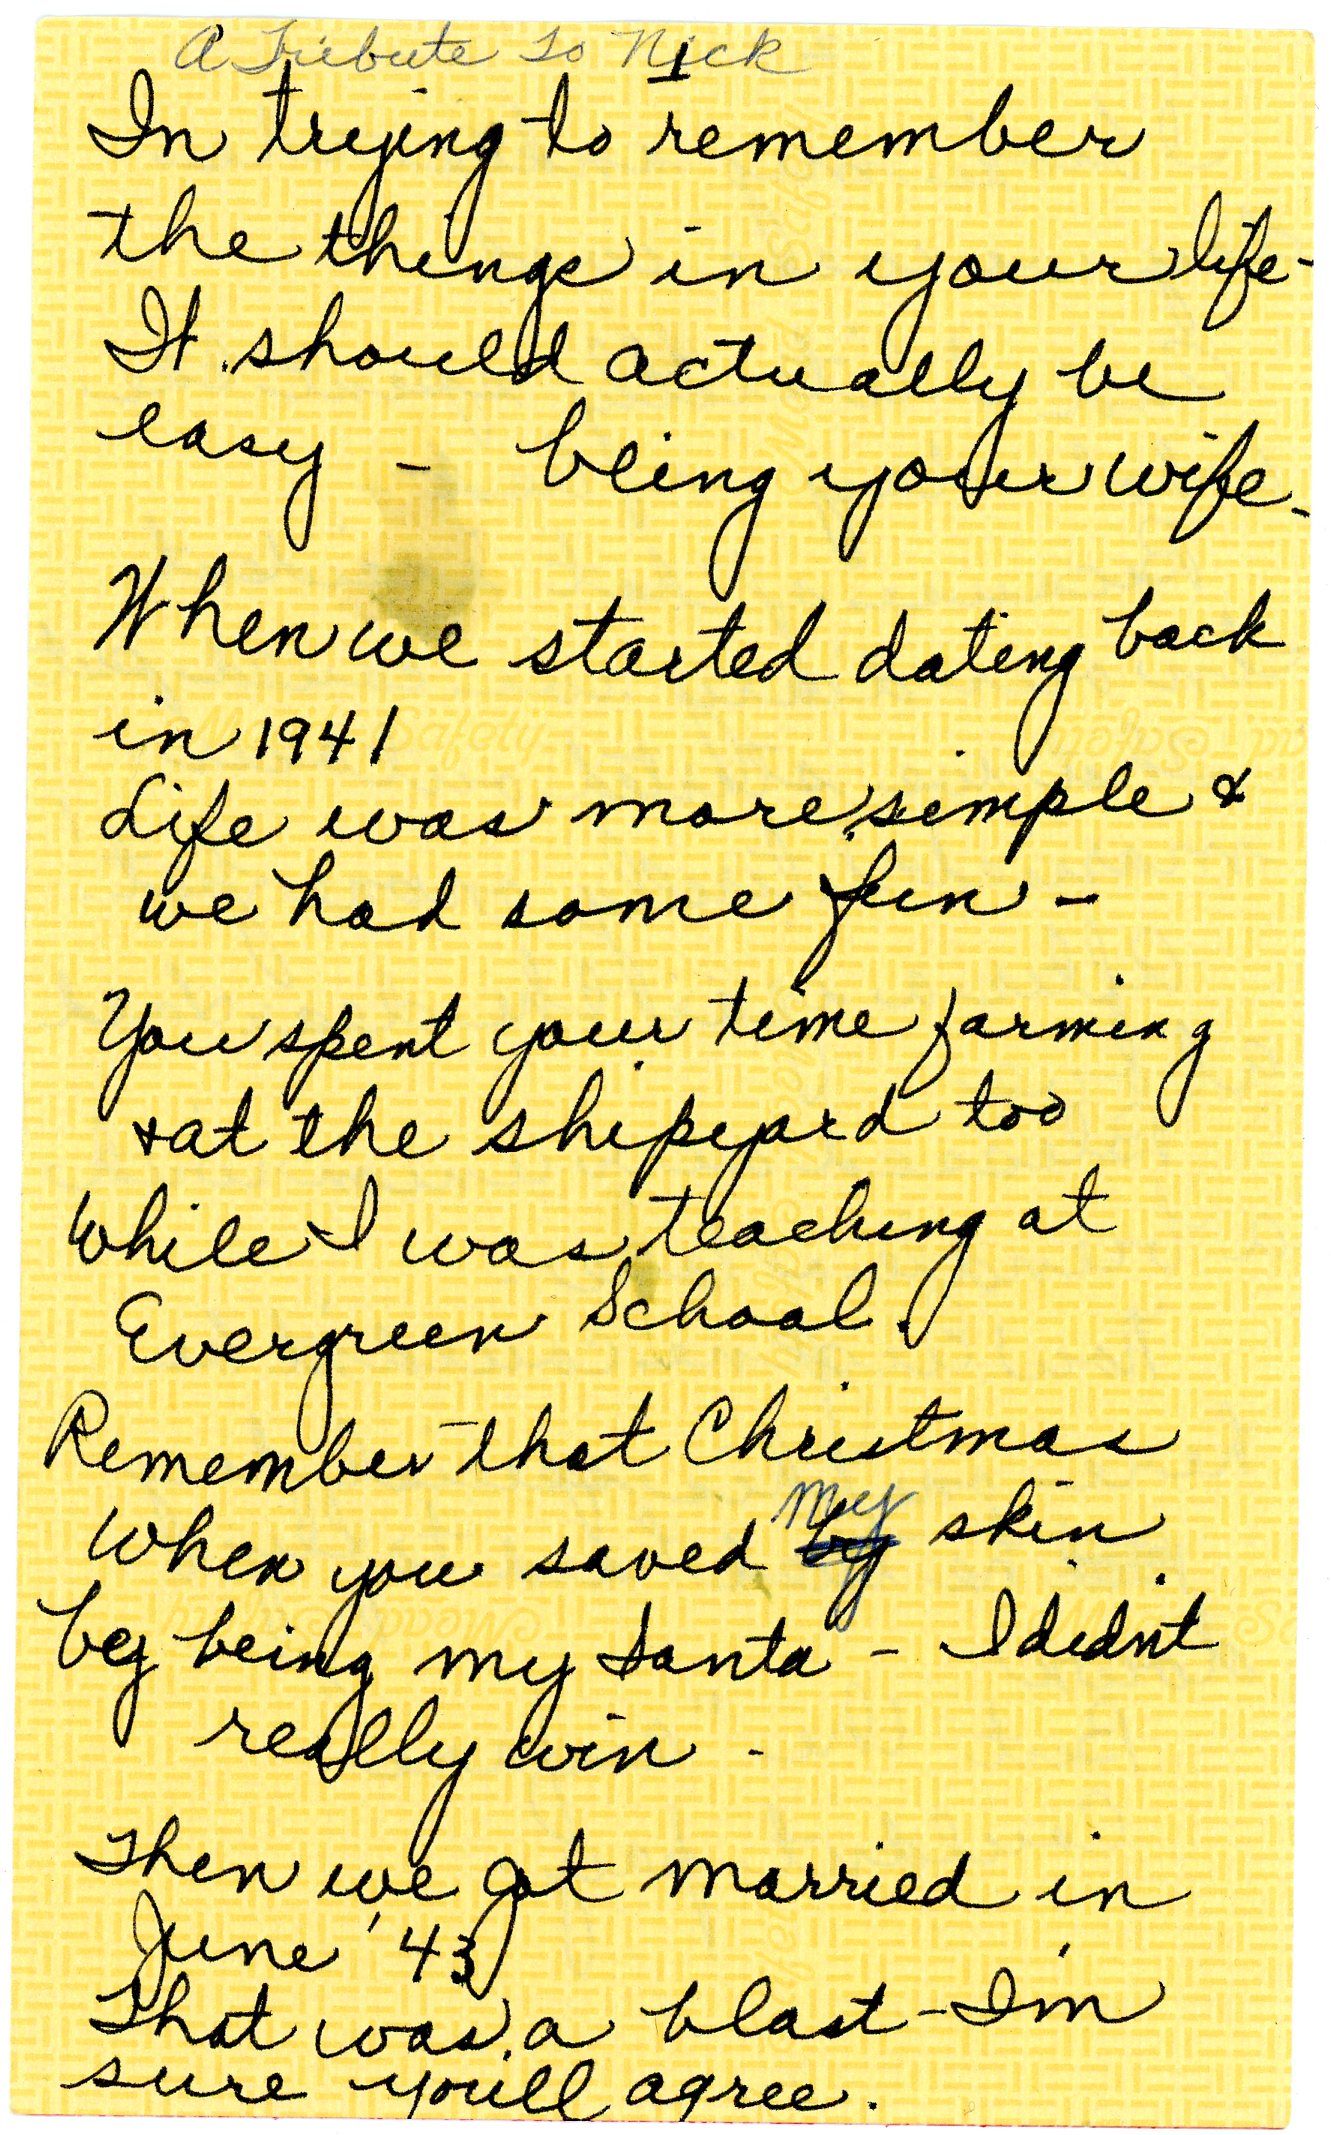 A Tribute to Nick
1
In trying to remember
the things in your life -
It should actually be
easy - being your wife -
When we started dating back
in 1941
Life was more simple &
we had some fun -
You spent your time farming
& at the shipyard too
While I was teaching at
Evergreen School.
Remember that Christmas
When you saved by my skin
by being my Santa - I didn't
really win -
Then we got married in
June '43
That was a blast - I'm
sure you'll agree.